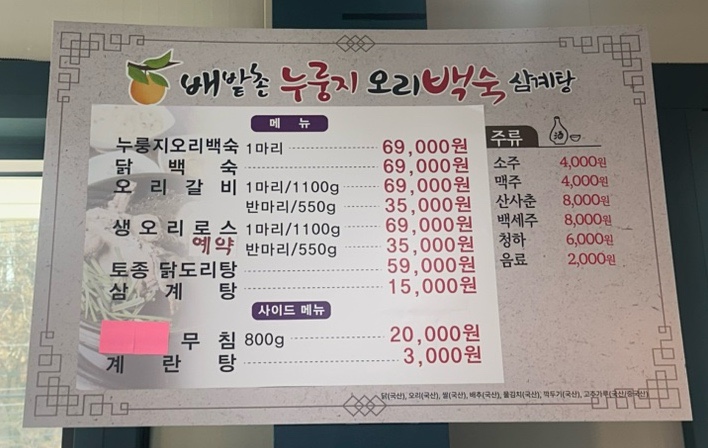 배밭촌 누룽지 오리백숙 삼계탕
메뉴
누룽지오리백숙 1마리 69,000원
닭백숙 69,000원
오리갈비 1마리/1100g 69,000원
반마리/550g 35,000원
생오리로스 1마리/1100g 69,000원
예약 반마리/550g 35,000원
토종 닭도리탕 59,000원
삼계탕 15,000원
사이드 메뉴
무침 800g 20,000원
계란탕 3,000원
주류 酒
소주 4,000원
맥주 4,000원
산사춘 8,000원
백세주 8,000원
청하 6,000원
음료 2,000원
닭(국산), 오리(국산), 쌀(국산), 배추(국산), 물김치(국산), 깍두기(국산), 고추가루(국산/중국산)